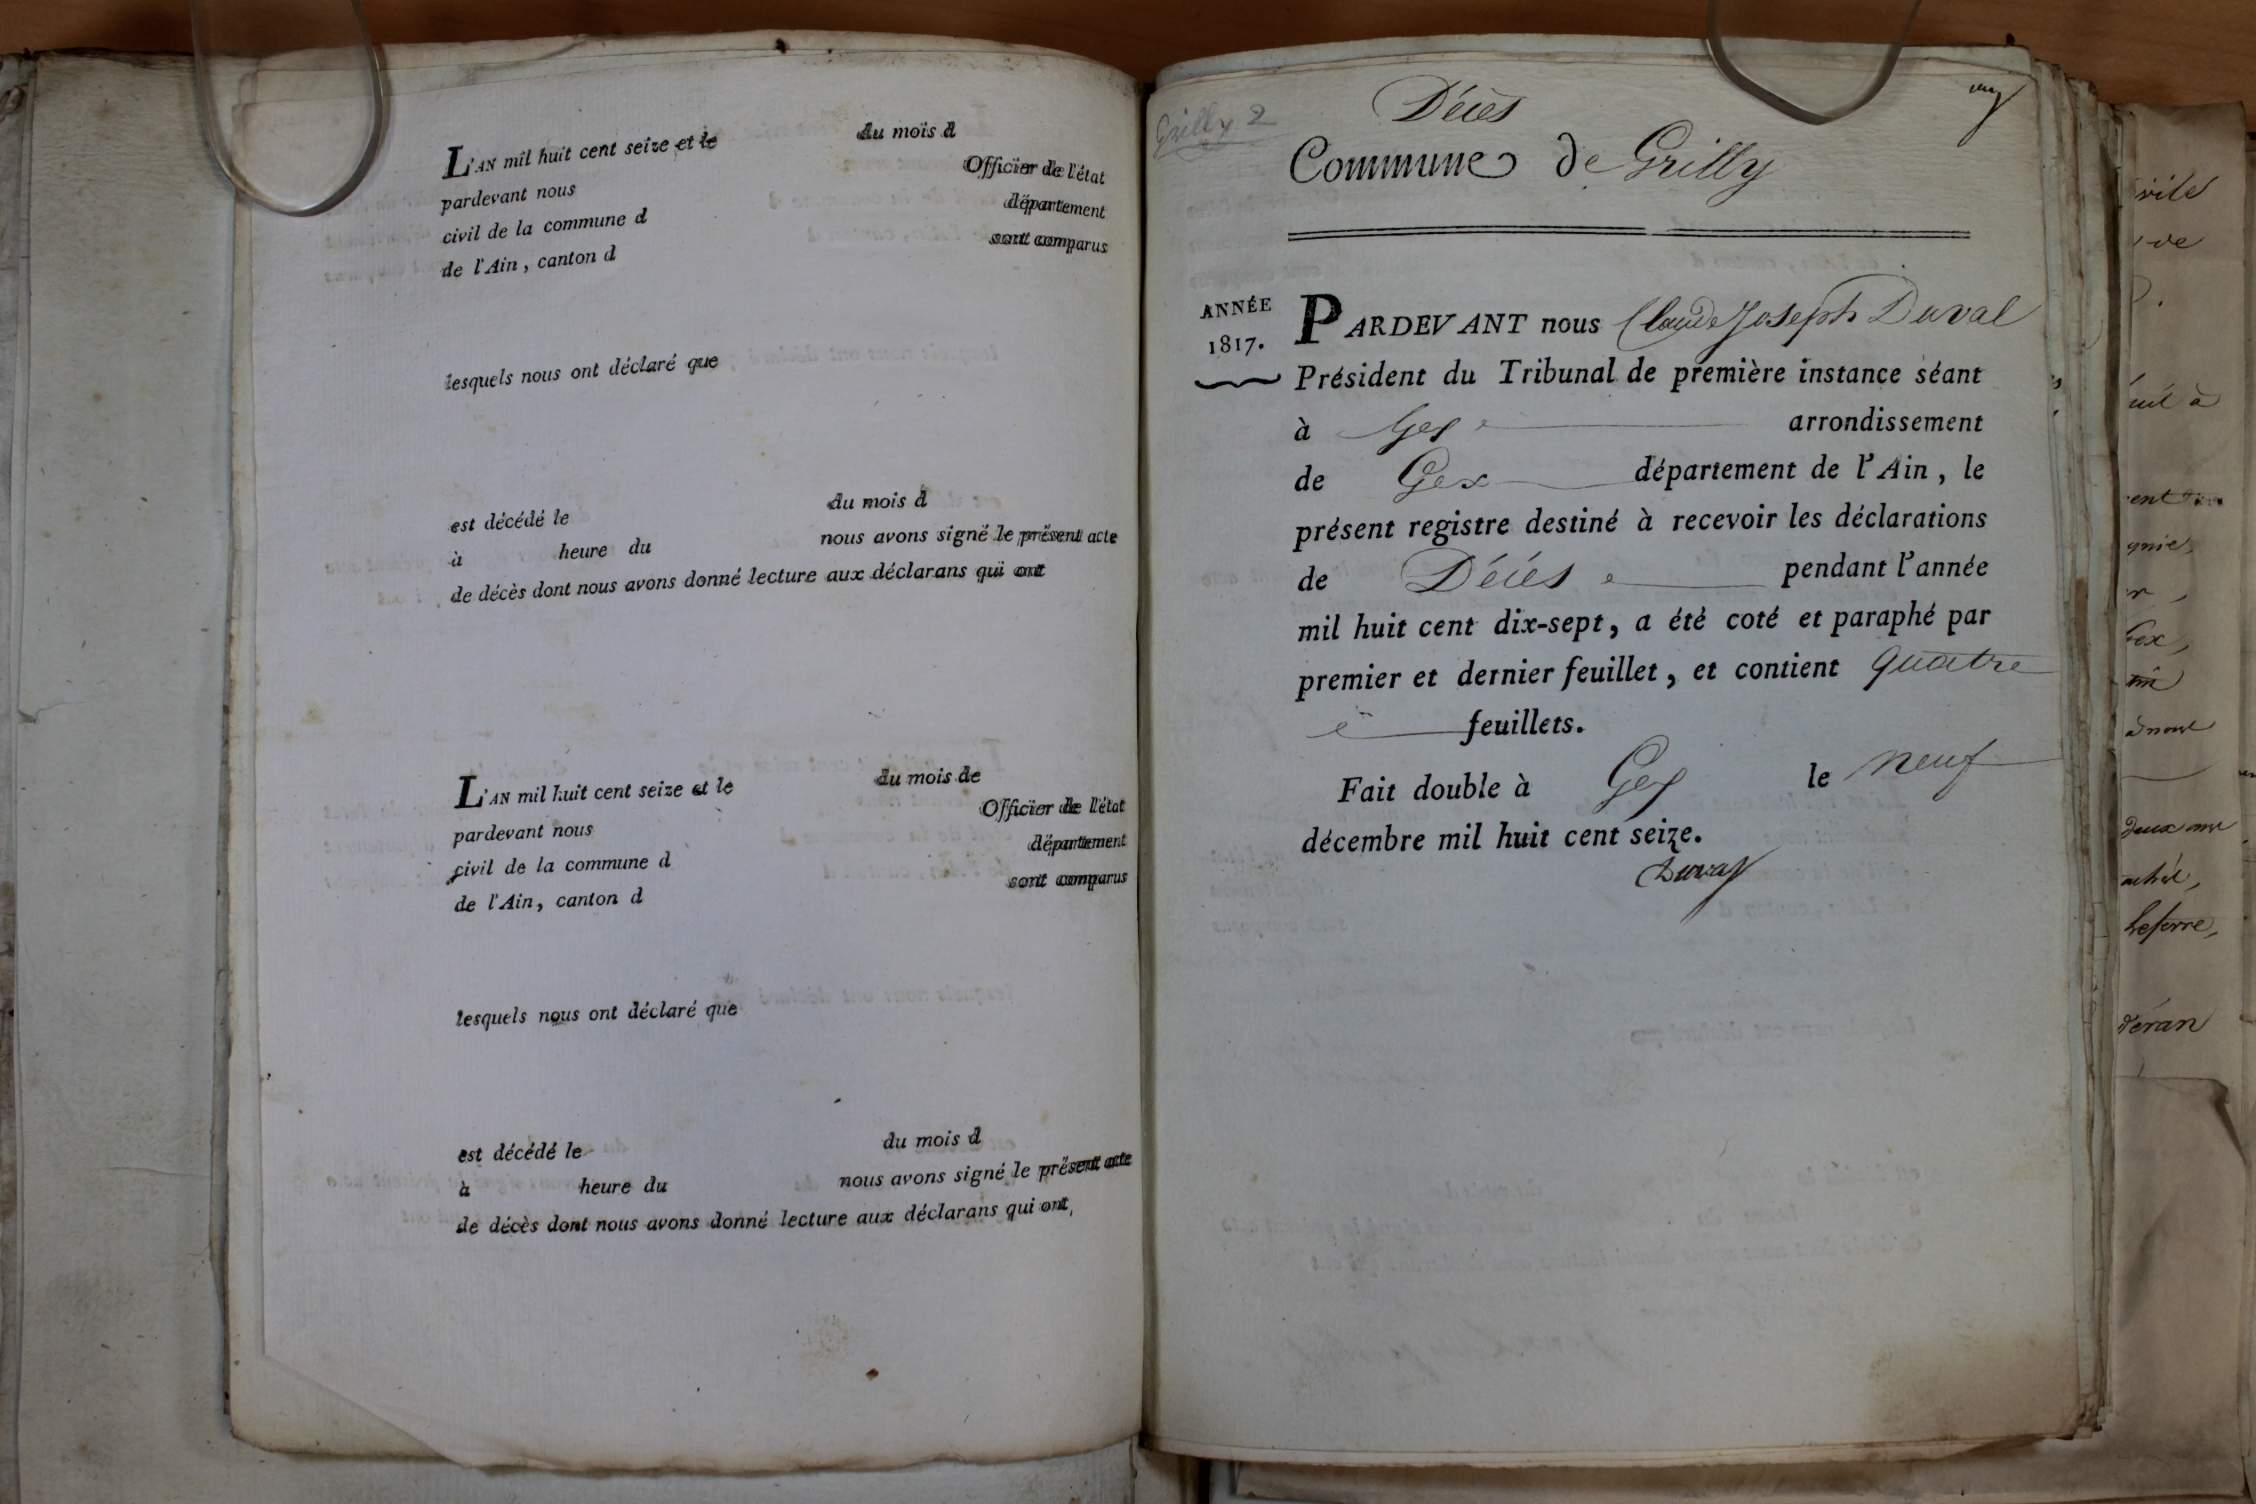 L'AN mil huit cent seize et le du mois d
pardevant nous Officier de l'état
civil de la commune d département
de l'Ain, canton d sont comparus
lesquels nous ont déclaré que
est décédé le du mois d
à heure du nous avons signé le présent acte
de décès dont nous avons donné lecture aux déclarans qui ont
L'AN mil huit cent seize et le du mois de
pardevant nous Officier de l'état
civil de la commune d département
de l'Ain, canton d sont comparus
lesquels nous ont déclaré que
est décédé le du mois d
à heure du nous avons signé le présent acte
de décès dont nous avons donné lecture aux déclarans qui ont,
Grilly 2
Décès
Commune de Grilly
ANNÉE
1817.
PARDEVANT nous Claude Joseph Duval
Président du Tribunal de première instance séant
à Gex arrondissement
de Gex département de l'Ain, le
présent registre destiné à recevoir les déclarations
de Décès pendant l'année
mil huit cent dix-sept, a été coté et paraphé par
premier et dernier feuillet, et contient quatre
feuillets.
Fait double à Gex le neuf
décembre mil huit cent seize.
Duval
de
Gex,